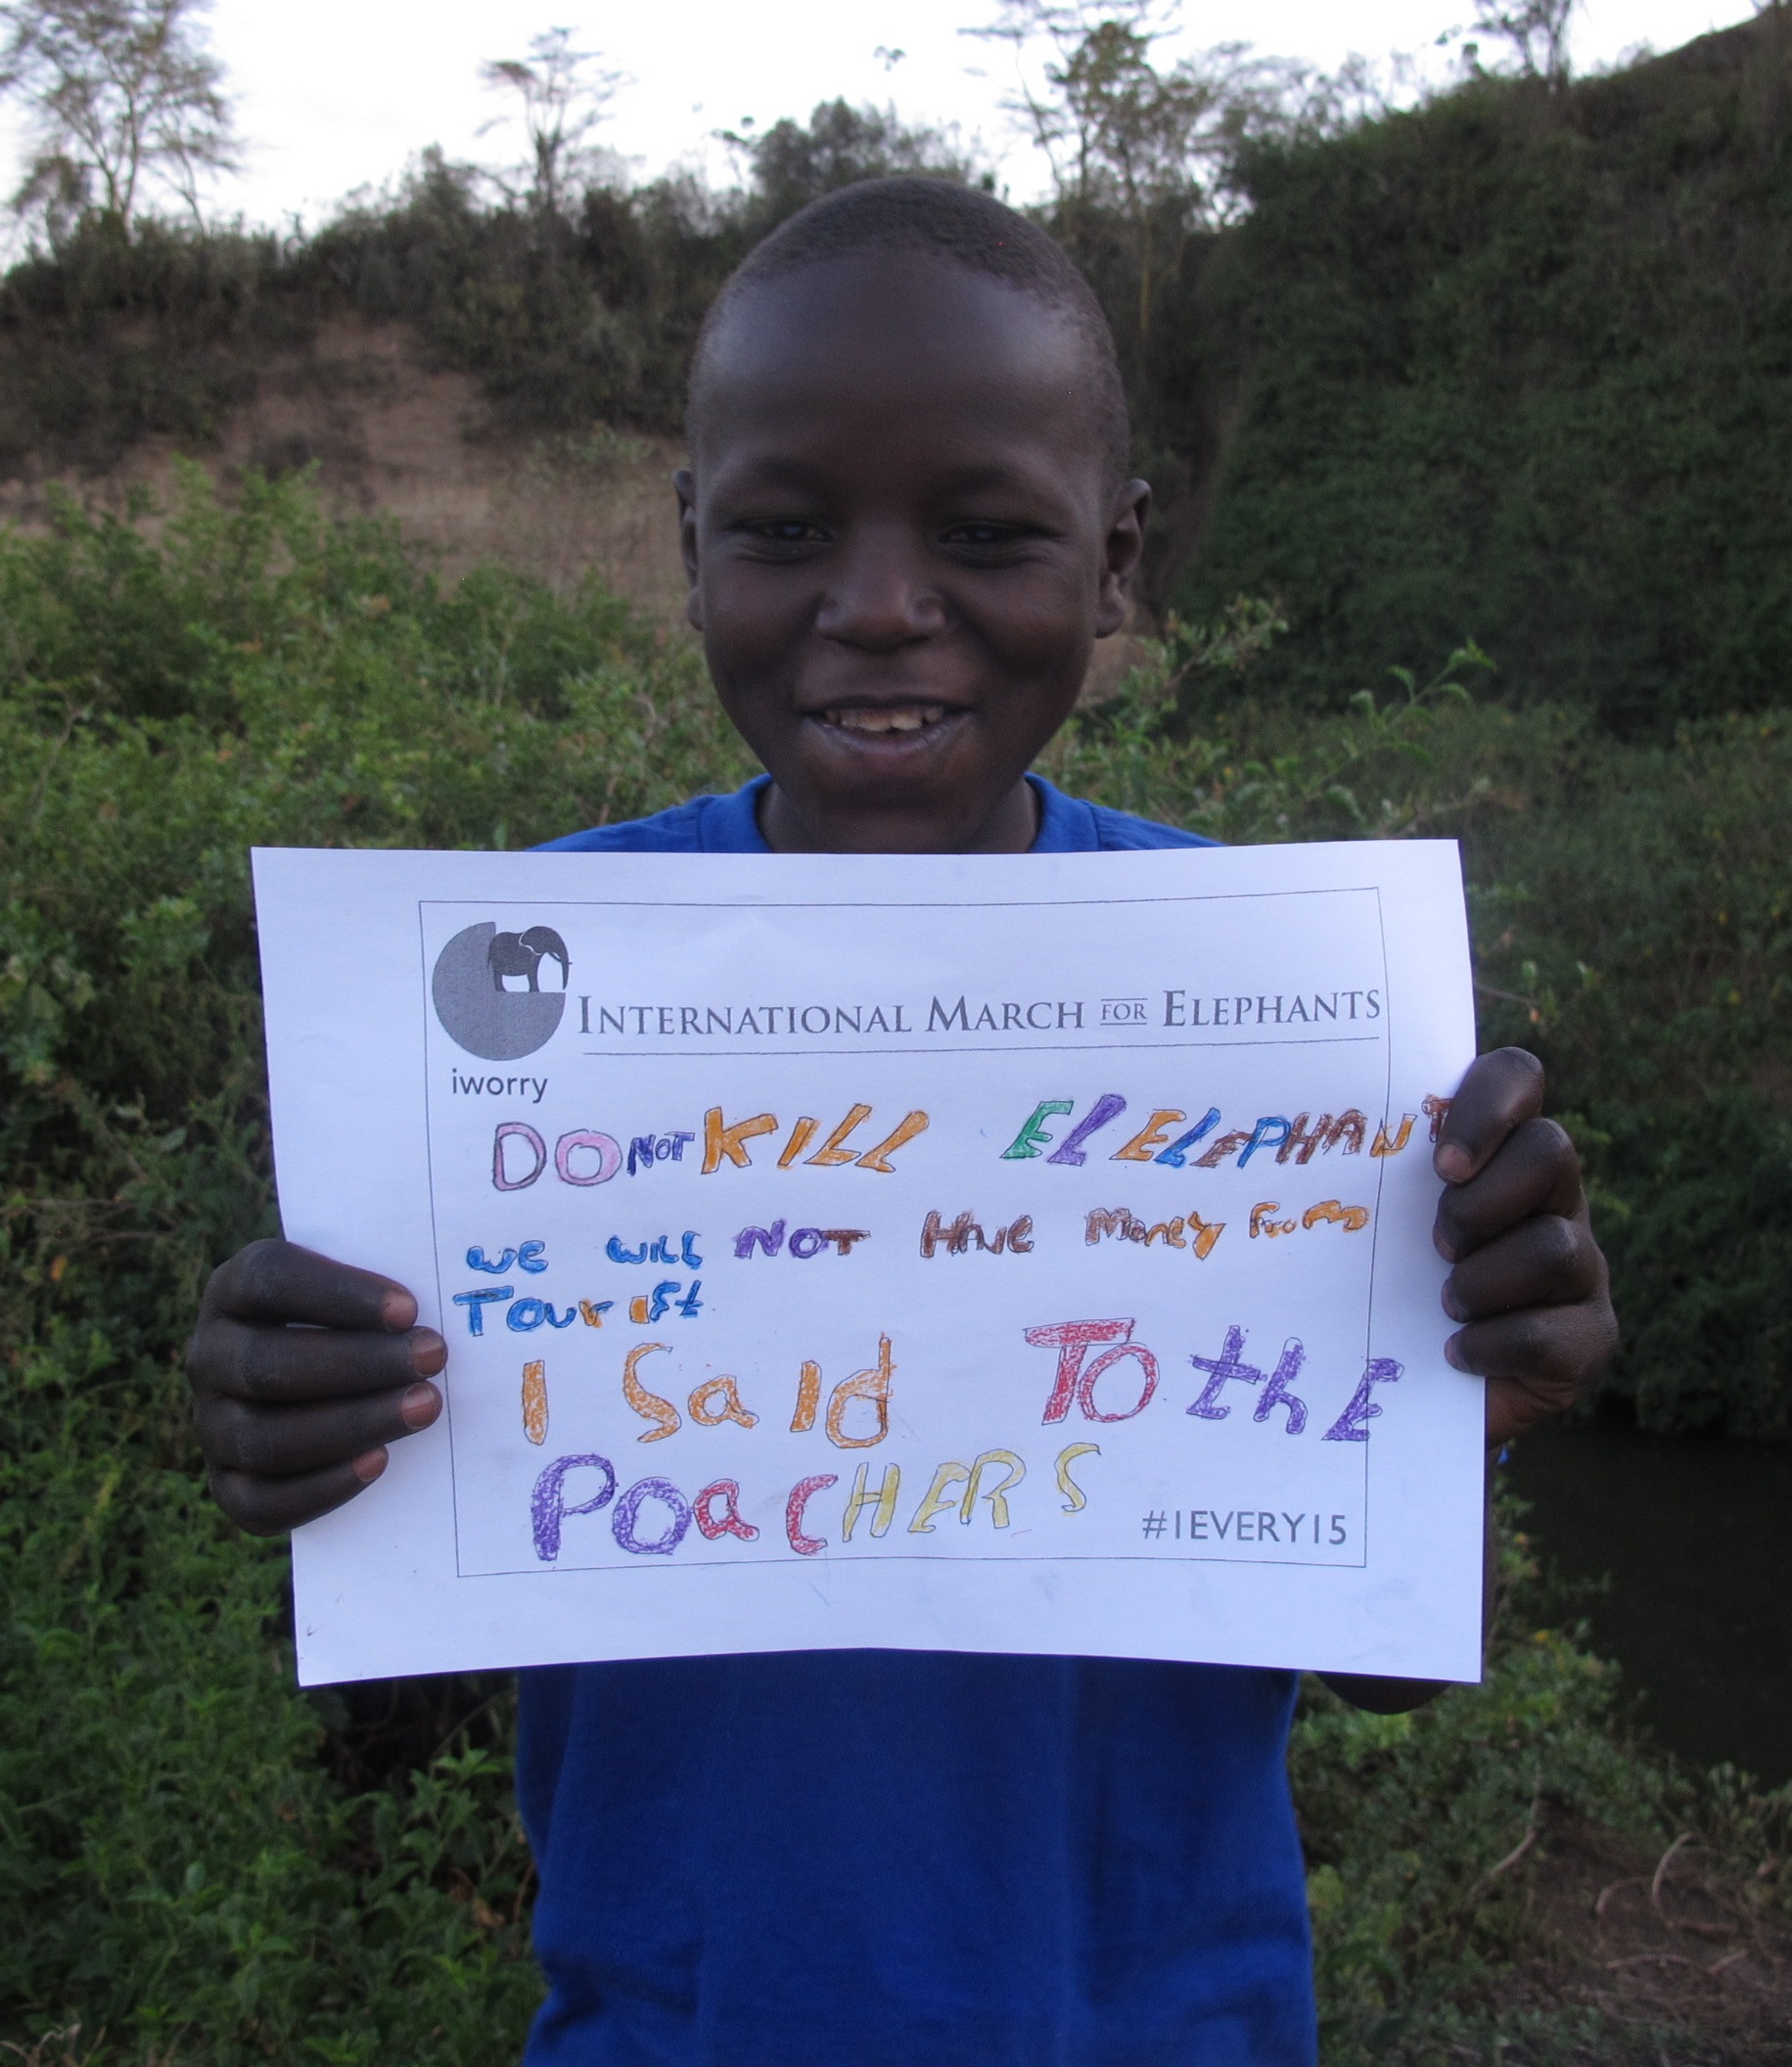 INTERNATIONAL MARCH FOR ELEPHANTS
iworry
DO NOT KILL ELELEPHANT
WE WILL NOT HAVE MONEY From
Tourist
I Said To thE
PoacHERS
#1EVERY15